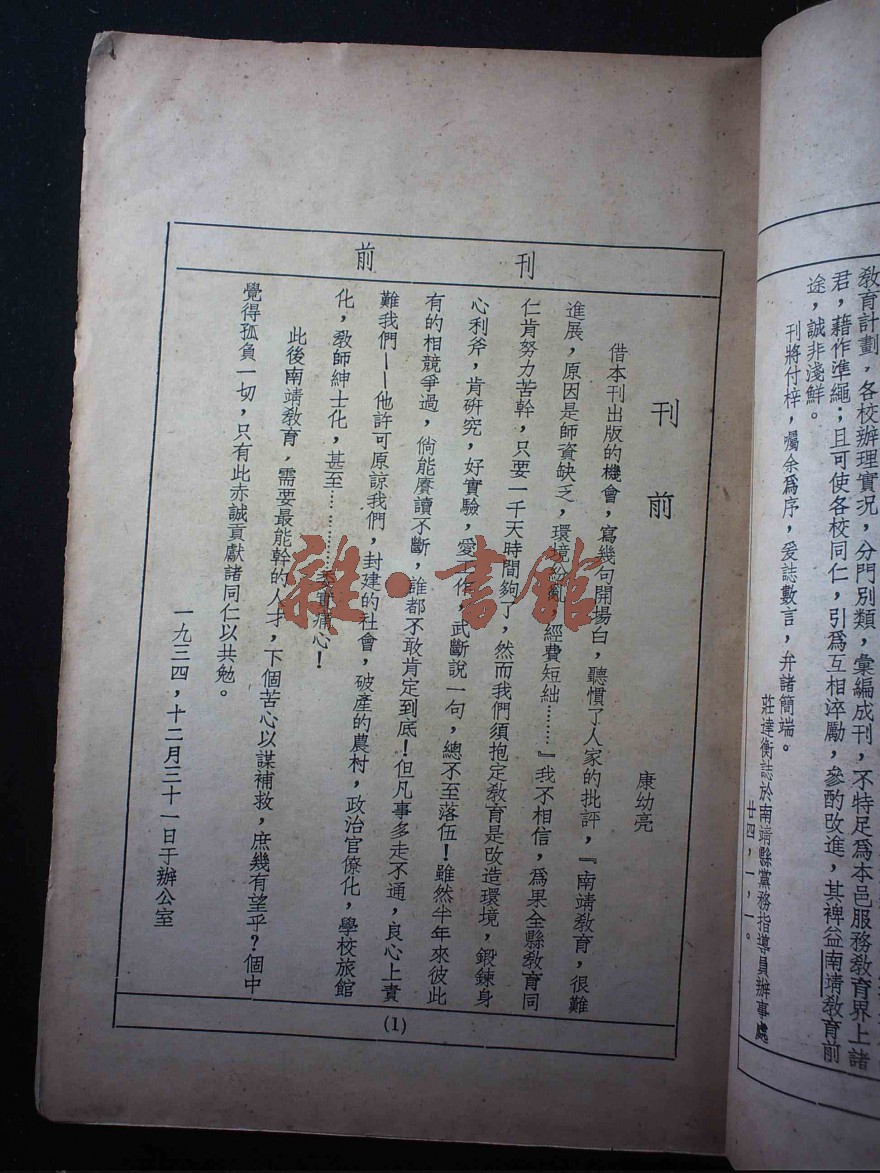 教育計劃，各校辦理實況，分門別類，彙編成刊，不特足爲本邑服務教育界上諸
君，藉作準繩；且可使各校同仁，引爲互相淬勵，參酌改進，其裨益南靖教育前
途，誠非淺鮮。
刊將付梓，囑余爲序，爰誌數言，弁諸簡端。
莊達衡誌於南靖縣黨務指導員辦事處
廿四，一，一。
刊前
刊前
康幼亮
借本刊出版的機會，寫幾句開場白，聽慣了人家的批評，『南靖教育，很難
進展，原因是師資缺乏，環境紛亂，經費短絀………』我不相信，爲果全縣教育同
仁肯努力苦幹，只要一千天時間夠了，然而我們須抱定教育是改造環境，鍛鍊身
心利斧，肯研究，好實驗，愛工作，武斷說一句，總不至落伍！雖然半年來彼此
有的相競爭過，倘能賡讀不斷，誰都不敢肯定到底！但凡事多走不通，良心上責
難我們——他許可原諒我們，封建的社會，破產的農村，政治官僚化，學校旅館
化，教師紳士化，甚至…………痛心！
此後南靖教育，需要最能幹的人才，下個苦心以謀補救，庶幾有望乎？個中
覺得孤負一切，只有此赤誠貢獻諸同仁以共勉。
一九三四，十二月三十一日于辦公室
(1)
雜·書館